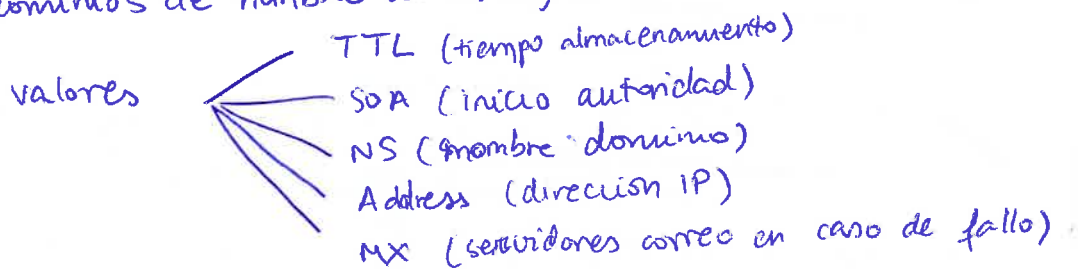 dominios de nombre
valores
TTL (tiempo almacenamiento)
SOA (inicio autoridad)
NS (nombre dominio)
Address (dirección IP)
MX (servidores correo en caso de fallo)